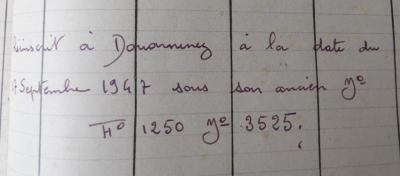 Réinscrit à Douarnenez à la date du
Septembre 1947 sous son ancien Nº
Hº 1250 Nº 3525.